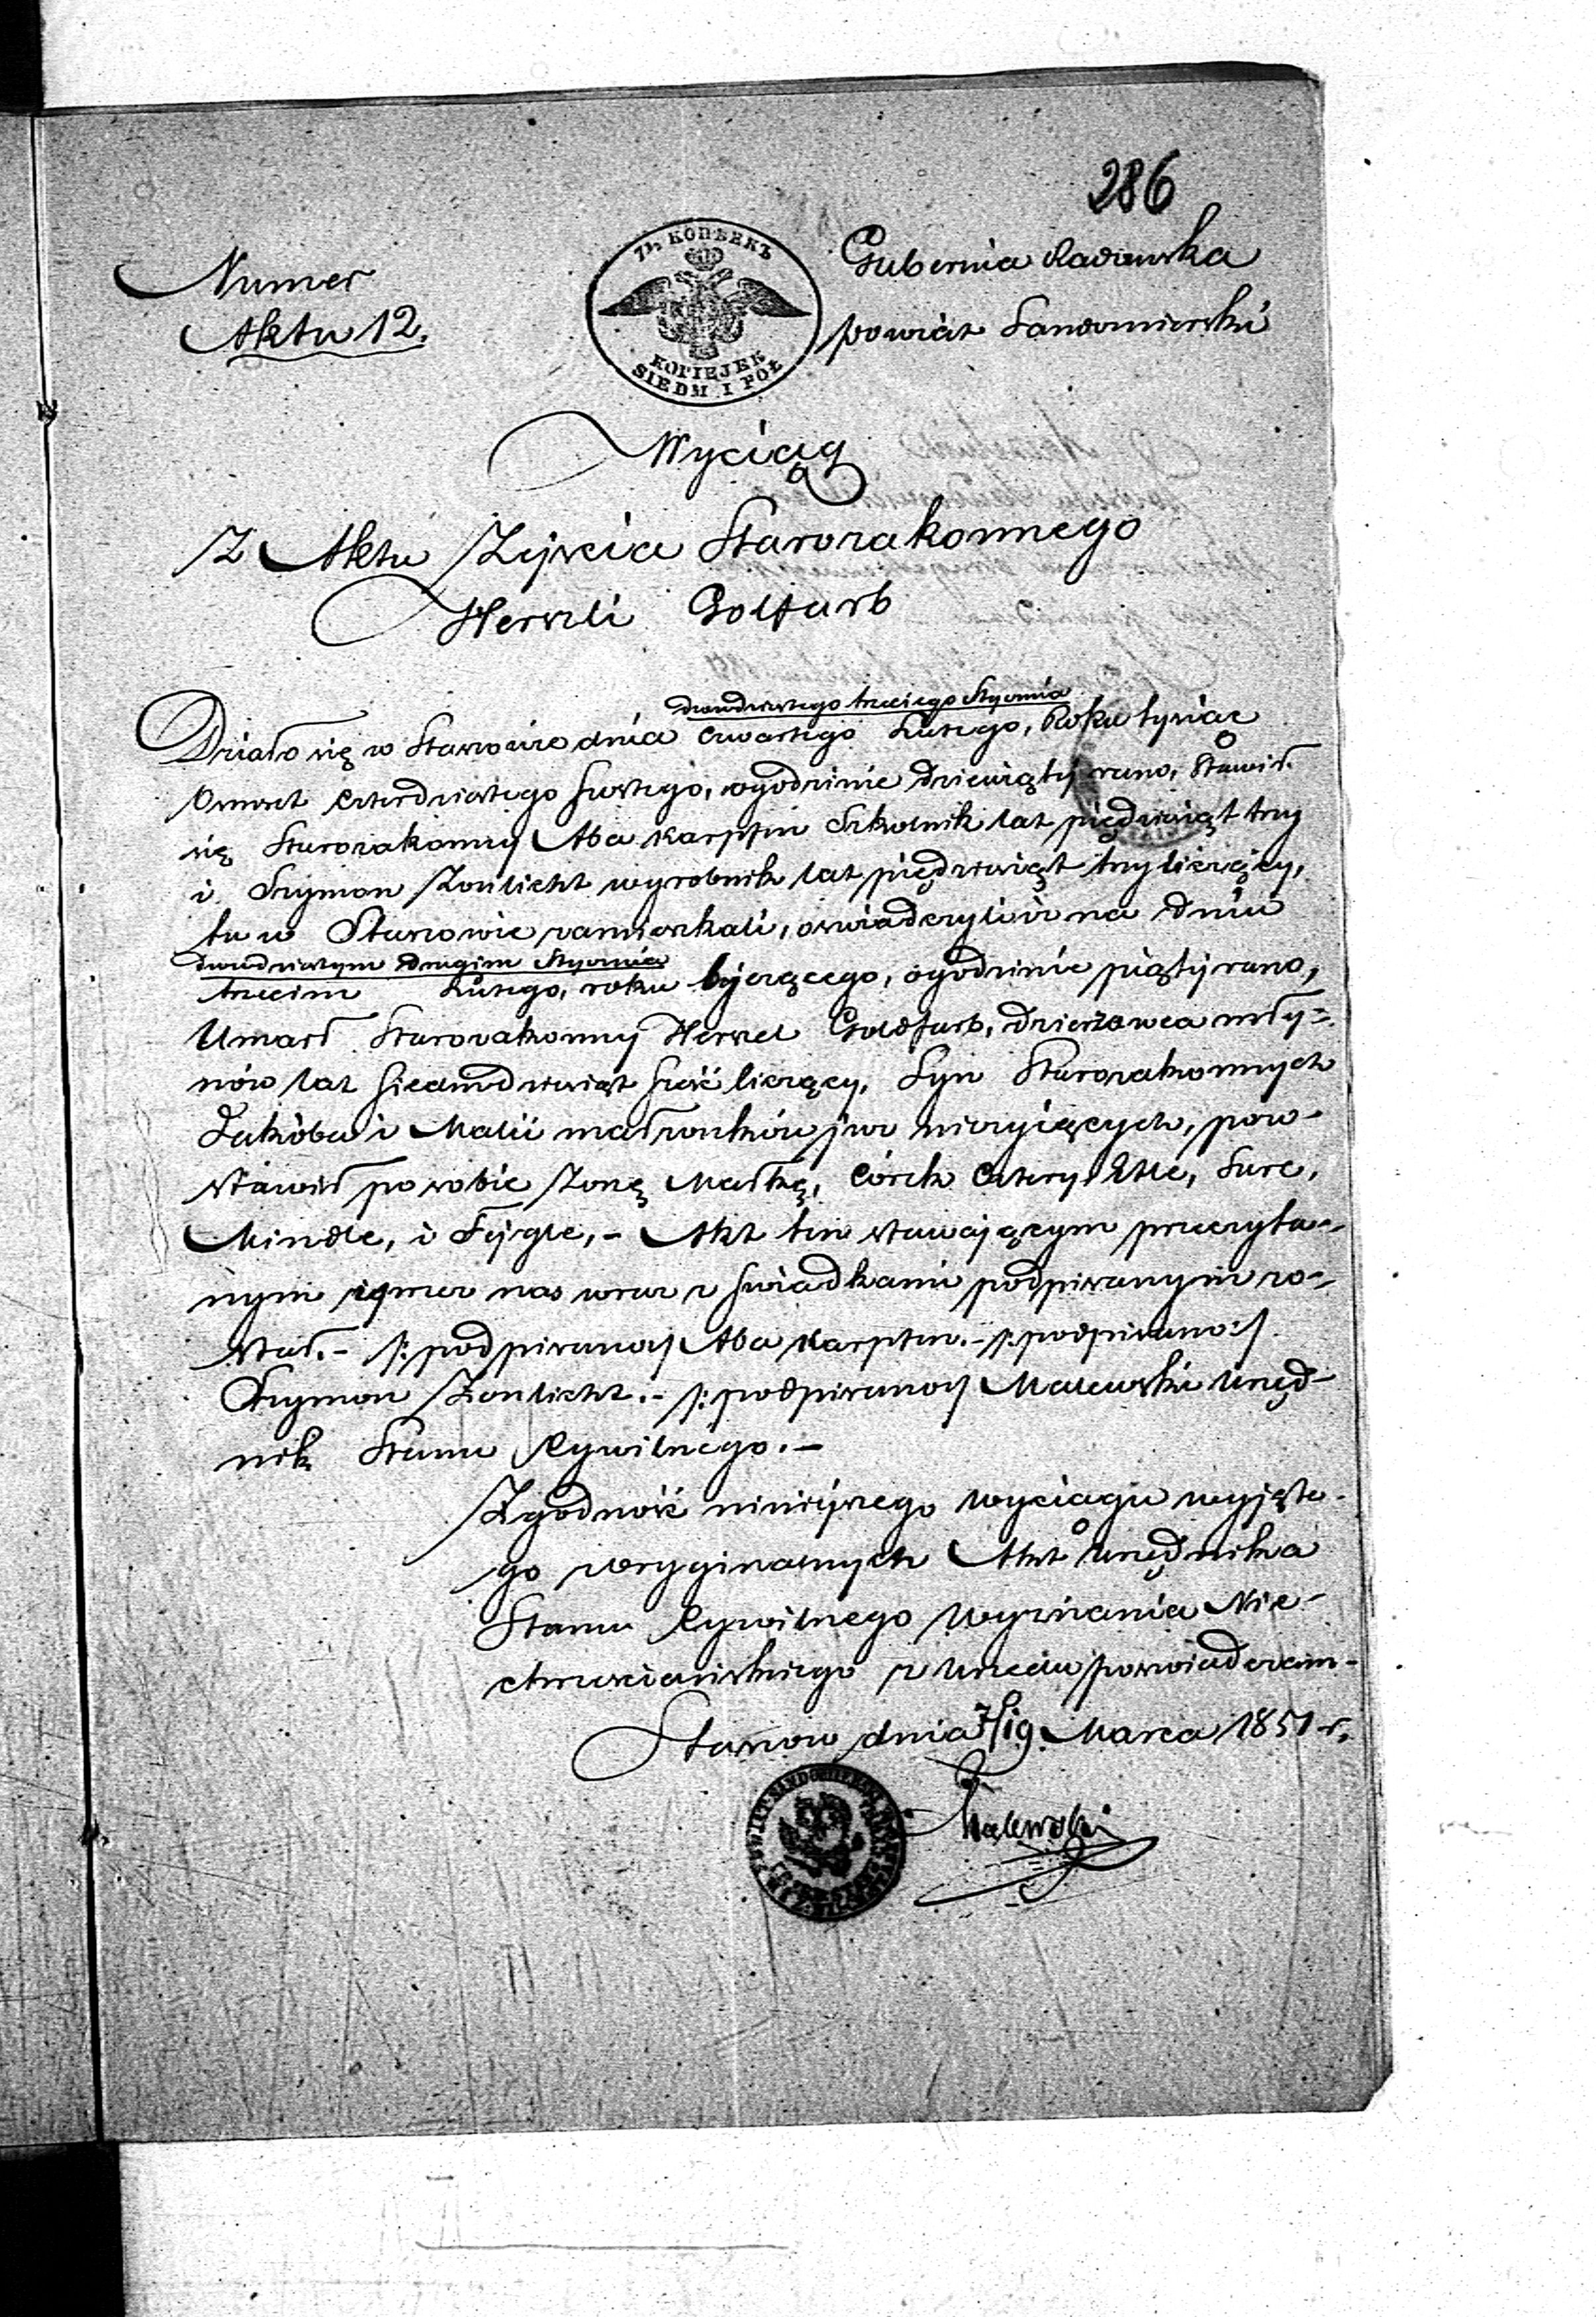 286
Numer
Aktu 12.
7½ КОПѢЕКЪ
KOPIEJEK
SIEDM I PÓŁ
Gubernia Radomska
powiat Sandomierski
Wyciąg
Z Aktu Zejścia Starozakonnego
Herszli Goltfarb
dwudziestego trzeciego Stycznia
Działo się w Staszowie dnia czwartego Lutego, Roku tysiąc
Osmset czterdziestego szostego, o godzinie dziewiąty rano, Stawił
się Starozakonny Aba Karpfin Szkolnik lat piędziesiąt trzy
i Szymon Zonlicht wyrobnik lat piędziesiąt trzy liczący,
tu w Staszowie zamieszkali, oswiadczyli iz na dniu
dwudziestym drugim Stycznia
trzecim Lutego, roku bjerzącego, o godzinie piąty rano,
Umarł Starozakonny Herszel Goldfarb, dzierżawca mły=
nów lat siedmdziesiąt sześć liczący, Syn Starozakonnych
Jakóba i Malii małzonków juz nieżyiących, pozo-
stawił po sobie Zonę Małkę, Córek Cztery Etle, Surę,
Mindle, i Fejgle, - Akt ten stawającym przeczyta-
nym i przez nas wraz z swiadkami podpisanym zo-
stał. - /: podpisano :/ Aba Karpfen. - /: podpisano :/
Szymon Zonlicht. - /: podpisano :/ Malewski Urzęd-
nik Stanu Cywilnego. -
Zgodność niniejszego wyciągu wyjęte-
go z oryginalnych Akt Urzędnika
Stanu Cywilnego Wyznania Nie-
chrześciańskiego z Urzędu poswiadczam -
Staszow dnia 7/19 Marca 1851 r.
Malewski